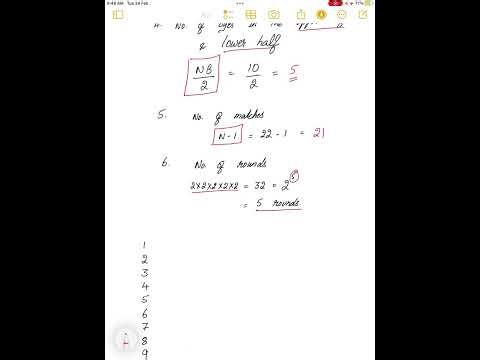 9:48 AM Tue 24 Feb
71%
4. No. of byes in the upper
& lower half
NB/2 = 10/2 = 5
5. No. of matches
N-1 = 22-1 = 21
6. No. of rounds
2x2x2x2x2 = 32 = 2⁵
= 5 rounds
1
2
3
4
5
6
7
8
9
A